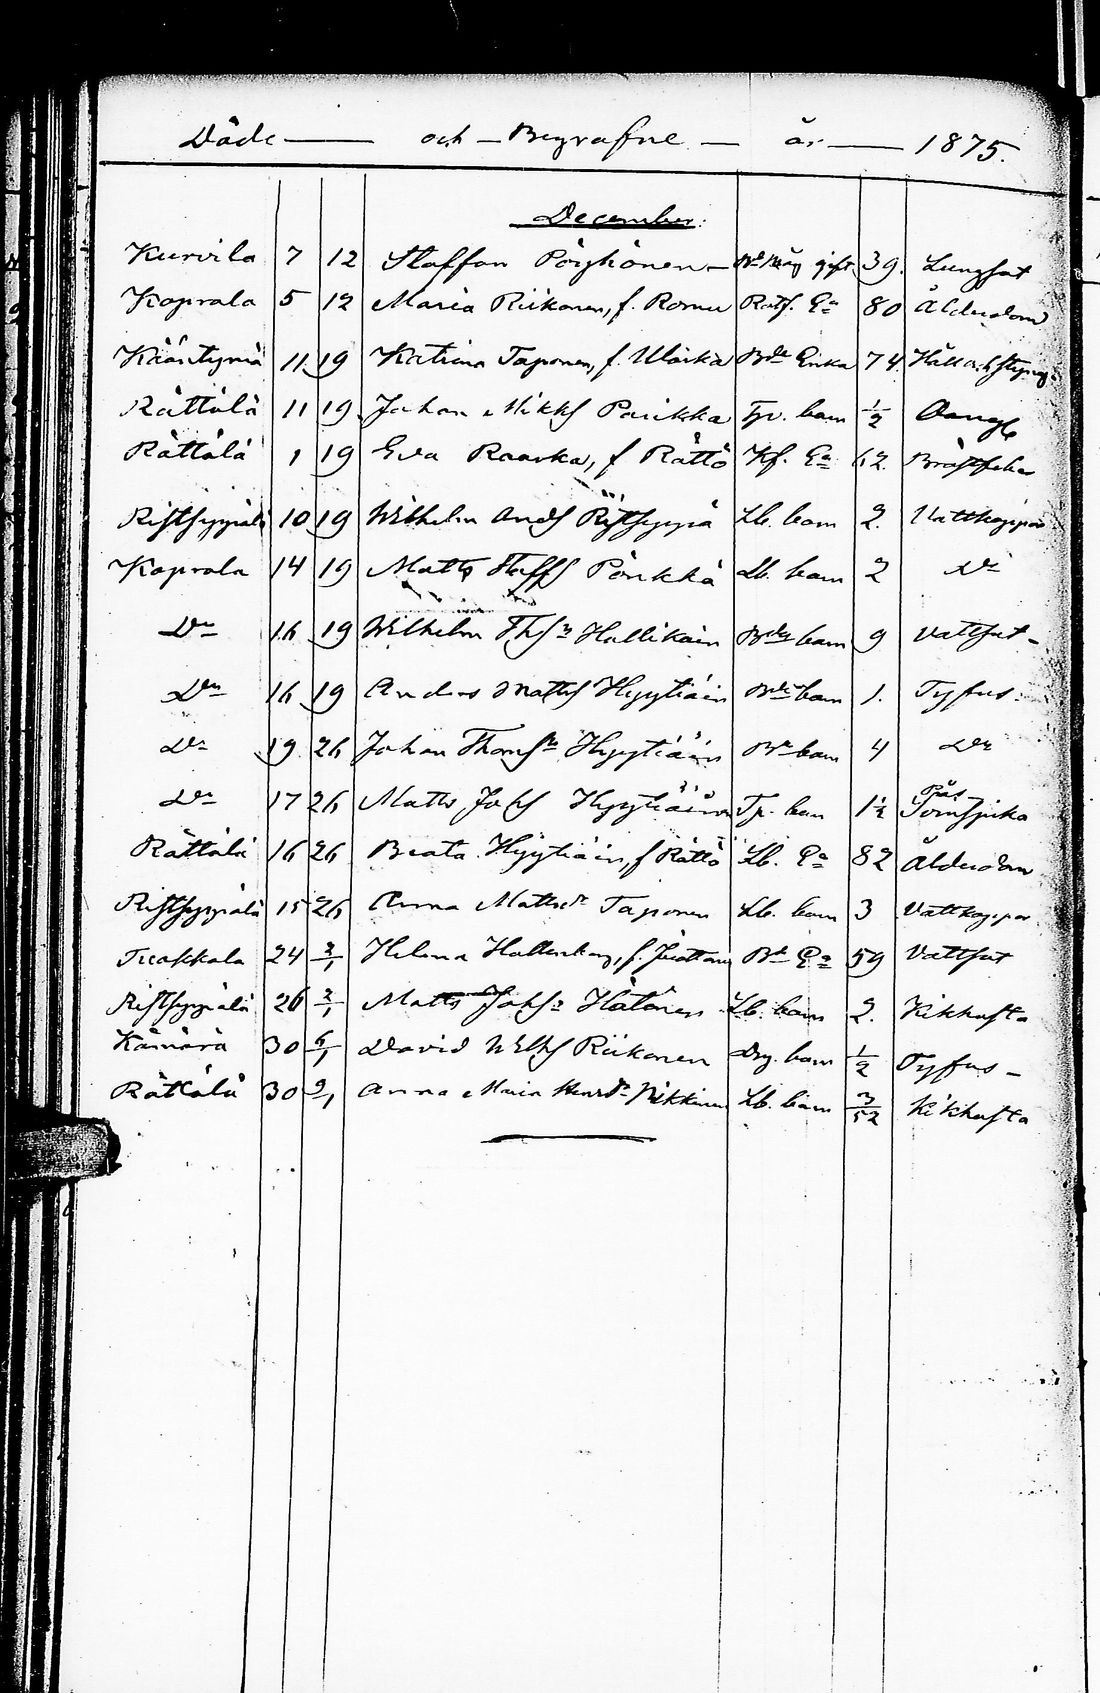 Döde — och — Begrafne — år — 1875.
December.
Kurvila 7 12 Staffan Pöyhönen — gift 39. Lungsot
Koprala 5 12 Maria Riikonen, f. Romu Rotf. Ea 80 Ålderdom
Kääntymä 11 19 Katrina Taponen, f. Bde Enka 74. Håll och
Rättälä 11 19 Johan Mikks Parikka barn 1/2
Rättälä 1 19 Eva Raaska, f Rättö Ea 62. Bröstfeber
Ristseppälä 10 19 Wilhelm Ands Ristseppä Lb. barn 2. Vattkoppor
Koprala 14 19 Matts Staffs Pönkkä Lb. barn 2 Do
Do 16 19 Wilhelm Thsn Hallikain Bde barn 9 Vattsot —
Do 16 19 Anders Matts Hyytiäin Bde barn 1. Tyfus.
Do 19 26 Johan Thomsn Hyytiäin Bde barn 4 Do
Do 17 26 Matts Johs Hyytiäinen Tp. barn 1 1/2
Rättälä 16 26 Beata Hyytiäin, f Rättö Lb. Ea 82 Ålderdom
Ristseppälä 15 26 Anna Mattsdr Taponen Lb. barn 3 Vattkoppor
Tuokkola 24 2/1 Helena Hallenberg, f. Bde Ea 59 Vattsot
Ristseppälä 26 2/1 Matts Johsn Hätönen Lb. barn 2. Kikhosta
Kämärä 30 6/1 David Wilhs Riikonen Drg. barn 1/2 Tyfus —
Rättälä 30 9/1 Anna Maria Henrdr Pikkinen Lb. barn 3/52 Kikhosta